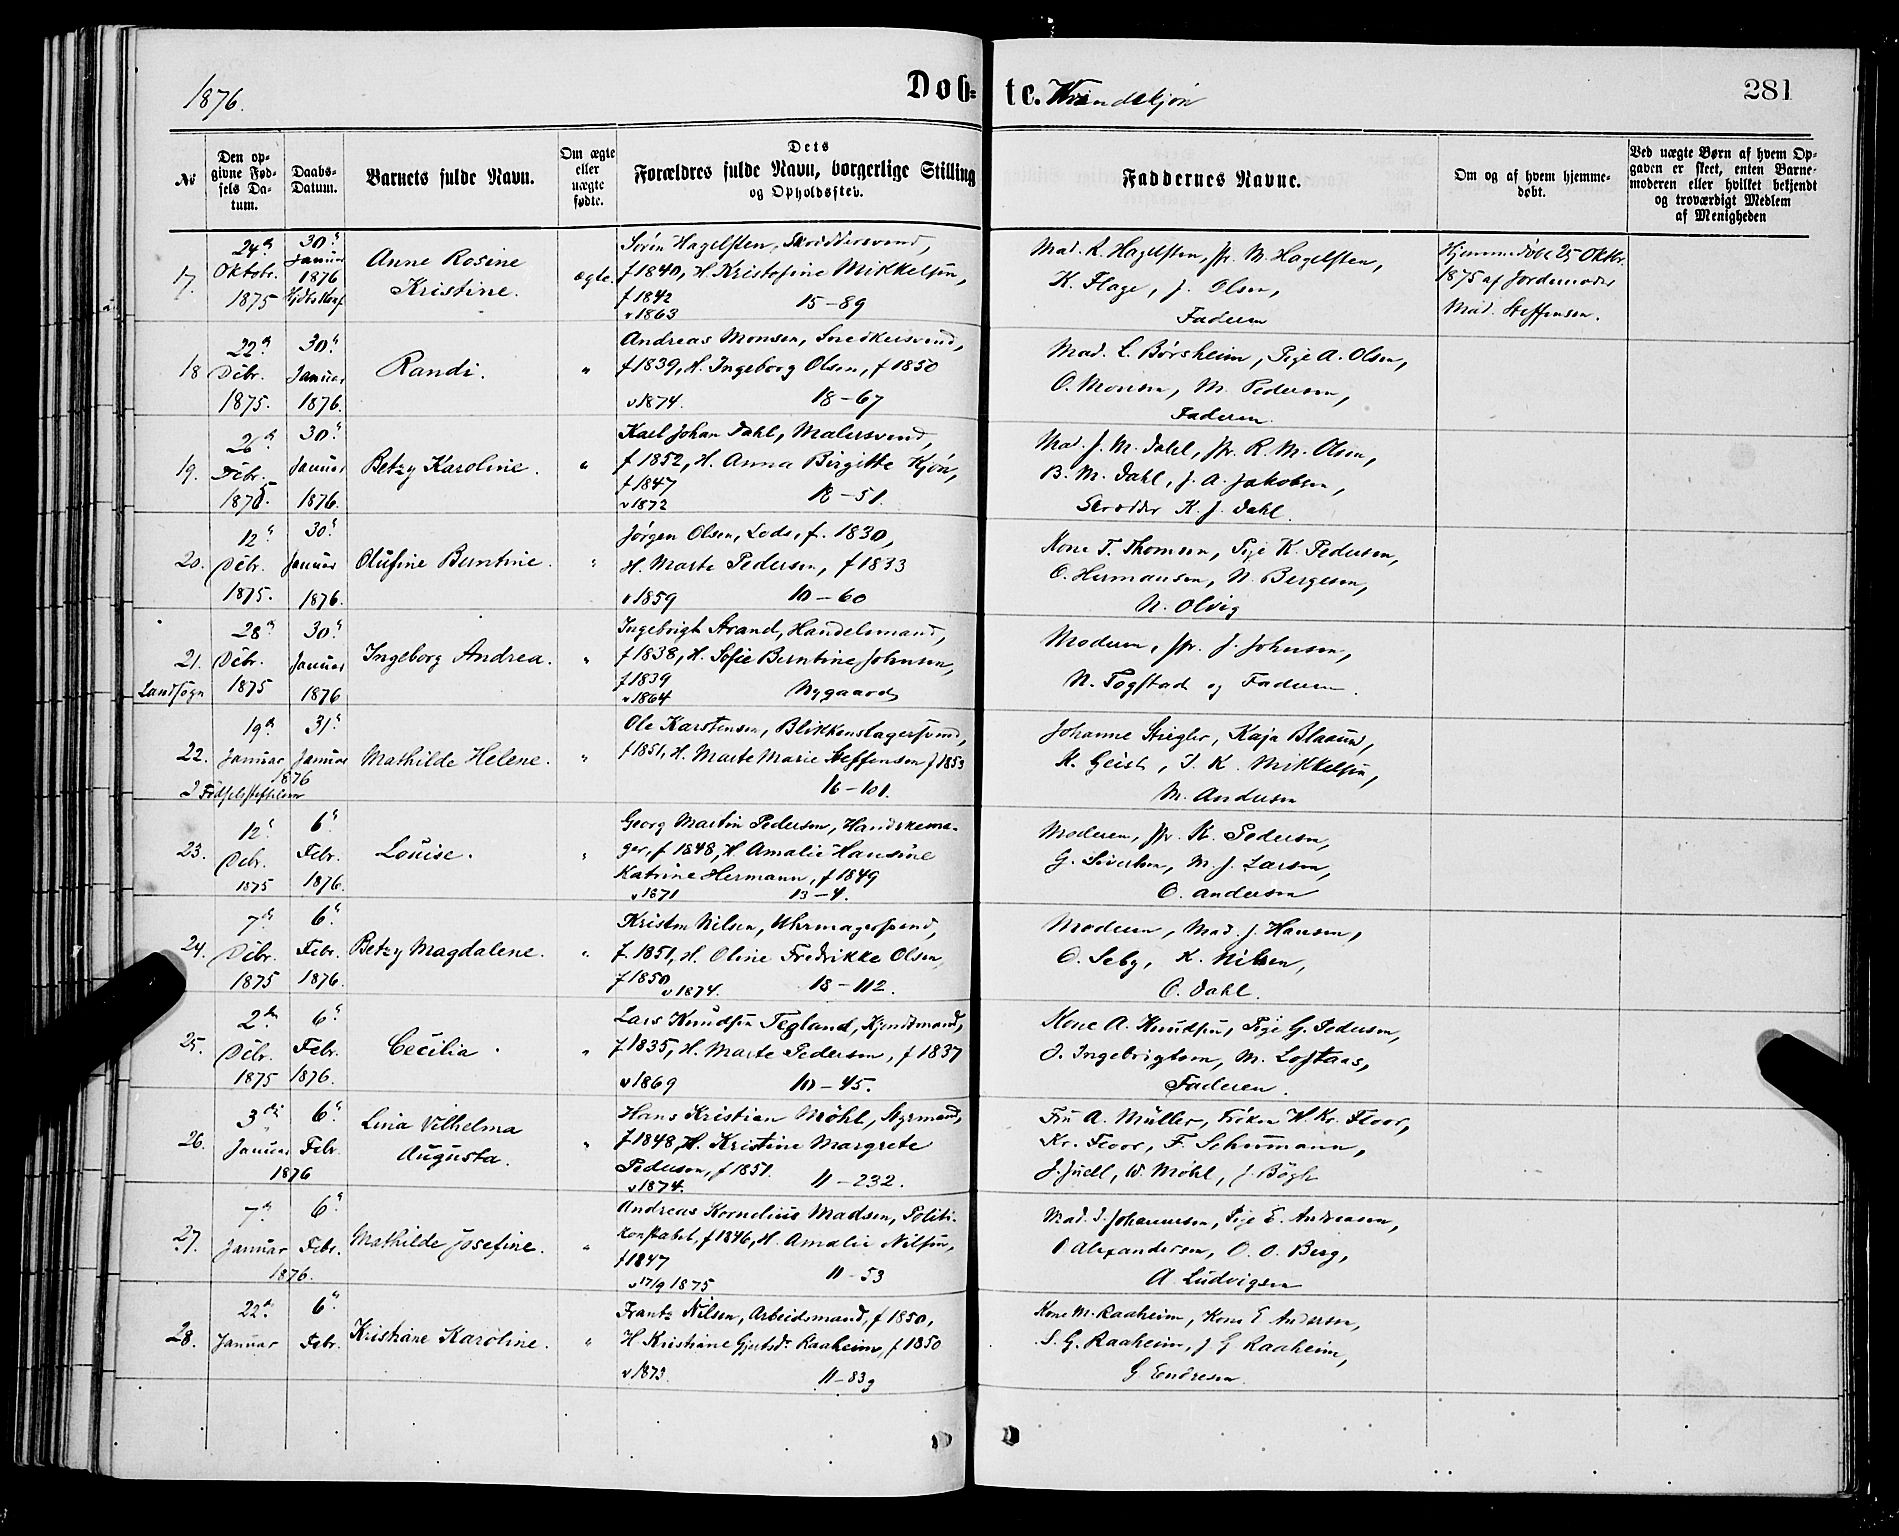 1876.
Døb-
te. Kvindekjøn
281
No
Den op-
givne Fød-
sels Da-
tum.
Daabs-
Datum.
Barnets fulde Navn.
Om ægte
eller
uægte
fødte.
Dets
Forældres fulde Navn, borgerlige Stilling
og Opholdssted.
Faddernes Navne.
Om og af hvem hjemme-
døbt.
Ved uægte Børn af hvem Op-
gaven er skeet, enten Barne-
moderen eller hvilket bekjendt
og troværdigt Medlem
af Menigheden
17.
24de
Oktobr.
1875
30te
Januar
1876
Anne Rosine
Kristine.
ægte.
Sørin Hagelsten, Skræddersvend,
f 1840, H. Kristofine Mikkelsen,
f 1842
v 1863 15-89
Mad. K. Hagelsten, M. Hagelsten,
K. Flage, J. Olsen,
Faderen
Hjemmedøbt 25 Oktbr.
1875 af Jordemoder
Mad. Steffensen.
18
22de
Debr.
1875.
30te
Januar
1876.
Randi.
"
Andreas Monsen, Snedkersvend,
f 1839, H. Ingeborg Olsen, f 1850
v 1874. 18-67
Mad. L. Børsheim, Pige A. Olsen,
O. Monsen, M. Pedersen,
Faderen.
19.
26de
Debr.
1875.
30te
Januar
1876.
Betzy Karoline.
"
Karl Johan Dahl, Malersvend,
f 1852, H. Anna Birgitte Kjøn,
f 1847
v 1872 18-51.
Mad. J. M. Dahl, R. M. Olsen,
B. M. Dahl, J. A. Jakobsen,
K. J. Dahl.
20.
12te
Debr.
1875.
30te
Januar
1876.
Olufine Berntine.
"
Jørgen Olsen, Lods, f. 1830,
H. Marte Pedersen, f 1833
v 1859 10-60
Kone T. Thomsen, Pige K. Pedersen,
O. Hermansen, N. Bergesen,
N. Olvig
21.
Landsogn
28de
Debr.
1875
30te
Januar
1876
Ingeborg Andrea.
"
Ingebrigt Strand, Handelsmand,
f 1838, H. Sofie Berntine Johnsen,
f 1839
v 1864 Nygaard
Moderen, J. Johnsen,
N. Fogstad og Faderen.
22.
19de
Januar
31te
Januar
1876
Mathilde Helene.
"
Ole Karstensen, Blikkenslagersvend,
f 1851, H. Marte Marie Steffensen f 1853
16-101.
Johanne Stiegler, Kaja Blaauw,
K. Geist, J. K. Mikkelsen,
M. Andersen
I Fødselsstiftelsen
23.
12te
Debr.
1875
6te
Febr.
1876.
Louise.
"
Georg Martin Pedersen, Handskema-
ger, f 1848, H. Amalie Hansine
Katrine Hermann, f 1849
v 1871 13-4.
Moderen, K. Pedersen,
G. Sivertsen, M. J. Larsen,
O. Andersen
24.
7de
Debr.
1875
6te
Febr.
1876.
Betzy Magdalene.
"
Kristen Nilsen, Uhrmagersvend,
f. 1851, H. Oline Fredrikke Olsen,
f 1850
v 1874. 18-112.
Moderen, Mad. J. Hansen,
O. Seby, K. Nilsen,
O. Dahl.
25.
2den
Debr.
1875
6te
Febr.
1876.
Cecilia.
"
Lars Knudsen Tegland, Kjøndmand,
f 1835, H. Marte Pedersen, f 1837
v 1869 10-45.
Kone A. Knudsen, Pige G. Pedersen,
O. Ingebrigtsen, M. Loftaas,
Faderen.
26.
3die
Januar
6te
Febr.
1876
Lina Vilhelma
Augusta.
"
Hans Kristian Møhl, Styrmand,
f 1848, H. Kristine Margrete
Pedersen, f 1851.
v 1874. 11-232.
Fru A. Müller, Frøken W. Kr. Floor,
Kr. Floor, F. Schumann,
J. Juell, W. Møhl, J. Bøgh
27.
7de
Januar
6te
Febr.
1876.
Mathilde Josefine.
"
Andreas Kornelius Madsen, Politi-
konstabel, f 1846, H. Amalie Nilsen,
f 1847
v 17/9 1875 11-53
Mad. J. Johannesen, Pige E. Andreasen,
Alexandersen, O. O. Berg,
A. Ludvigsen
28.
22de
Januar
6te
Febr.
Kristiane Karoline.
"
Frantz Nilsen, Arbeidsmand, f 1850,
H Kristiane Gjertsdr. Raaheim, f 1850
v 1873. 11-83g
Kone M. Raaheim, Kone E Andersen,
S. G. Raaheim, J G Raaheim,
G Endresen.